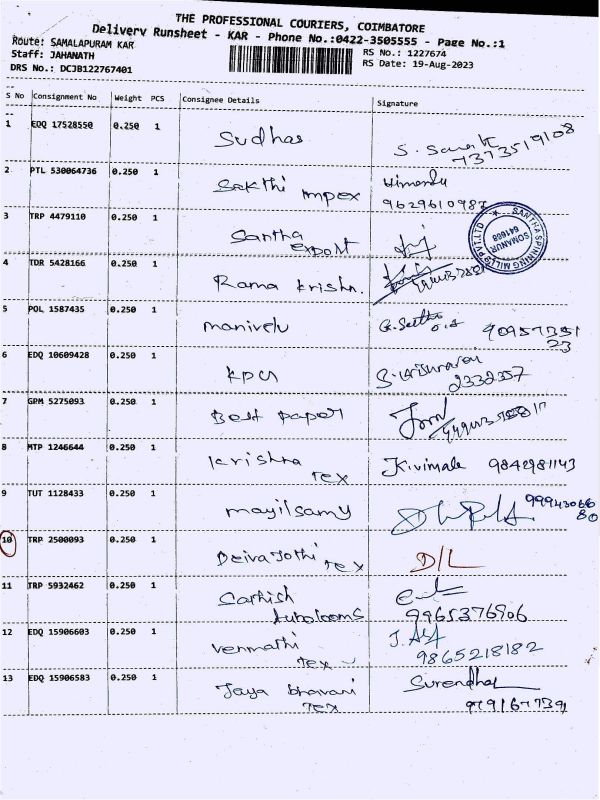 THE PROFESSIONAL COURIERS, COIMBATORE
Delivery Runsheet - KAR - Phone No.:0422-3505555 - Page No.:1
Route: SAMALAPURAM KAR
RS No.: 1227674
Staff: JAHANATH
RS Date: 19-Aug-2023
DRS No.: DCJB122767401
S No Consignment No Weight PCS Consignee Details Signature
1 EDQ 17528550 0.250 1 Sudhas
7373519108
2 PTL 530064736 0.250 1 Sakthi Impex
9629610987
3 TRP 4479110 0.250 1 Santha export
SANTHA SPINNING MILLS PVT.LTD
SOMANUR
641668
4 TDR 5428166 0.250 1 Rama krishn.
5 POL 1587435 0.250 1 manivelu
9095735123
6 EDQ 10609428 0.250 1 KPCN
2332357
7 GPM 5275093 0.250 1 Best paper
8 MTP 1246644 0.250 1 krishna Tex
J.Kivimala 9842981143
9 TUT 1128433 0.250 1 mayilsamy
9994306680
10 TRP 2500093 0.250 1 Deiva Jothi Tex
D/L
11 TRP 5932462 0.250 1 Sathish Autolooms
9965376906
12 EDQ 15906603 0.250 1 Venmathi Tex
9865218182
13 EDQ 15906583 0.250 1 Jaya bhavani Tex
Surendhar